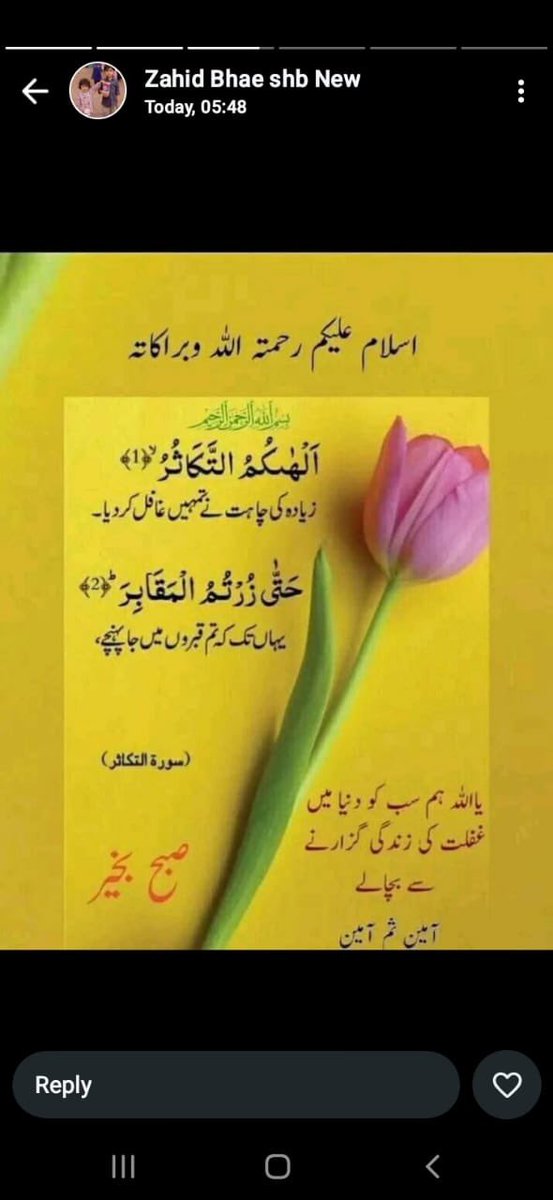 Zahid Bhae shb New
Today, 05:48
اسلام علیکم رحمتہ اللہ وبراکاتہ
بسم الله الرحمن الرحيم
اَلْهٰىكُمُ التَّكَاثُرُۙ ﴿1﴾
زیادہ کی چاہت نے تمہیں غافل کر دیا۔
حَتّٰى زُرْتُمُ الْمَقَابِرَؕ ﴿2﴾
یہاں تک کہ تم قبروں میں جا پہنچے،
(سورۃ التکاثر)
یااللہ ہم سب کو دنیا میں
غفلت کی زندگی گزارنے
سے بچالے
آمین ثم آمین
صبح بخیر
Reply